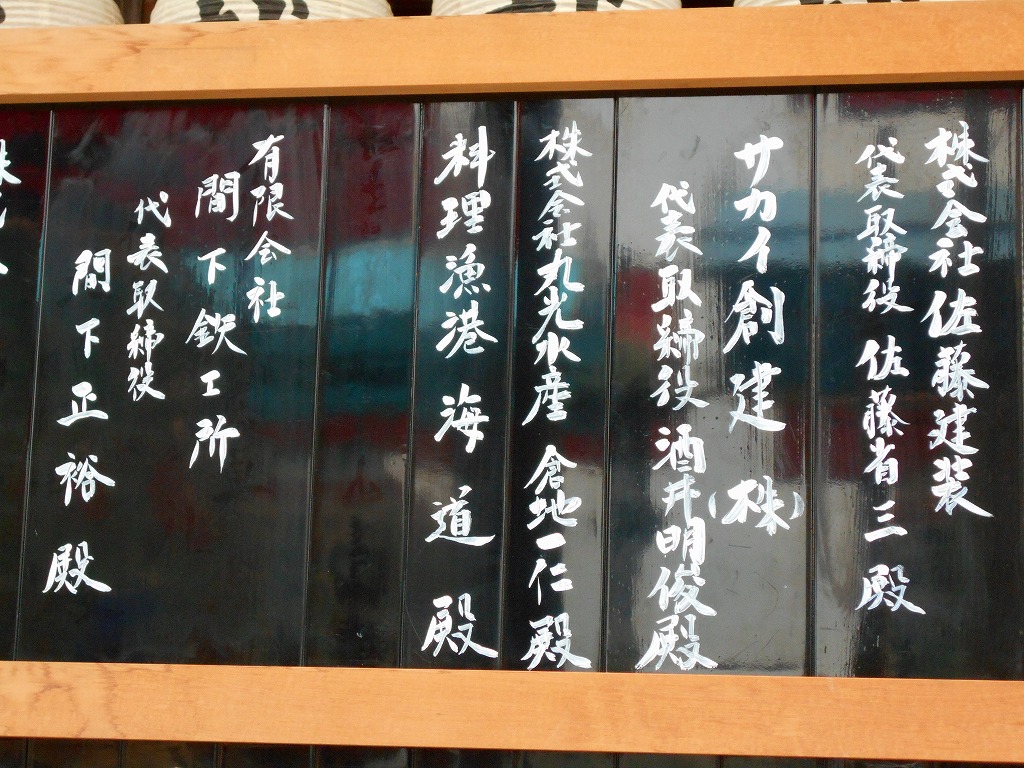 株式会社佐藤建装
代表取締役 佐藤省三 殿
サカイ創建(株)
代表取締役 酒井明俊殿
株式会社丸光水産 倉地一仁 殿
料理漁港 海道 殿
有限会社
間下鉄工所
代表取締役
間下正裕殿